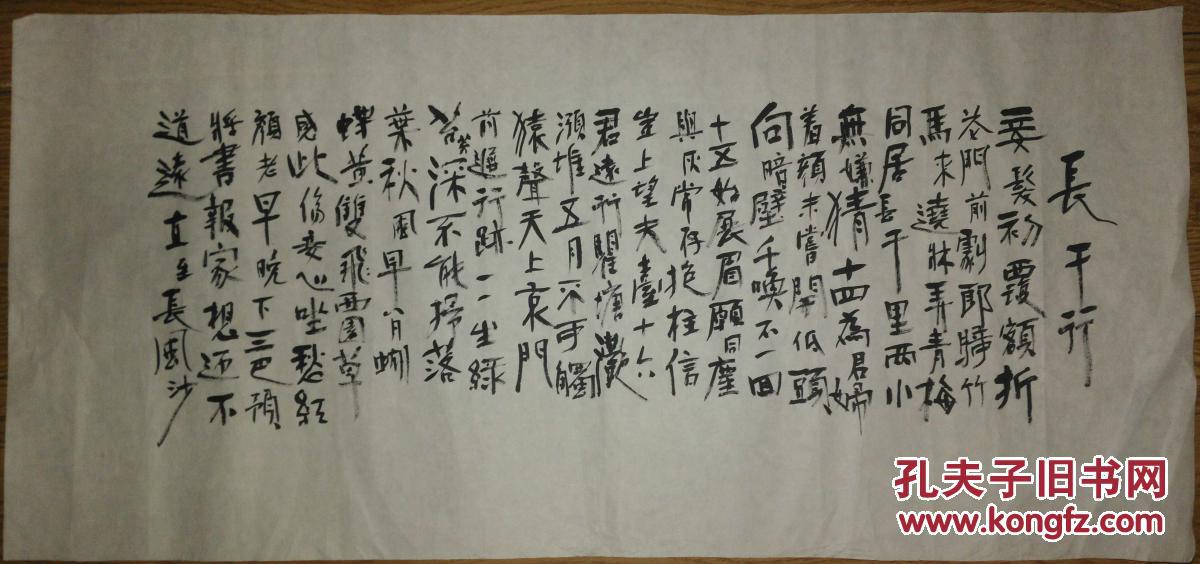 長干行
妾髮初覆額折
花門前劇郎騎竹
馬來遶牀弄青梅
同居長干里兩小
無嫌猜十四為君婦
羞顏未嘗開低頭
向暗壁千喚不一回
十五始展眉願同塵
與灰常存抱柱信
豈上望夫臺十六
君遠行瞿塘灩
澦堆五月不可觸
猿聲天上哀門
前遲行跡一一生綠
苔苔深不能掃落
葉秋風早八月蝴
蝶黃雙飛西園草
感此傷妾心坐愁紅
顏老早晚下三巴預
將書報家想迎不
道遠直至長風沙
孔夫子旧书网
www.kongfz.com